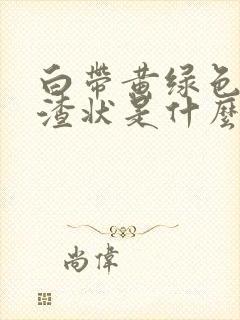 白帶黄绿色
渣状是什麼
尚偉